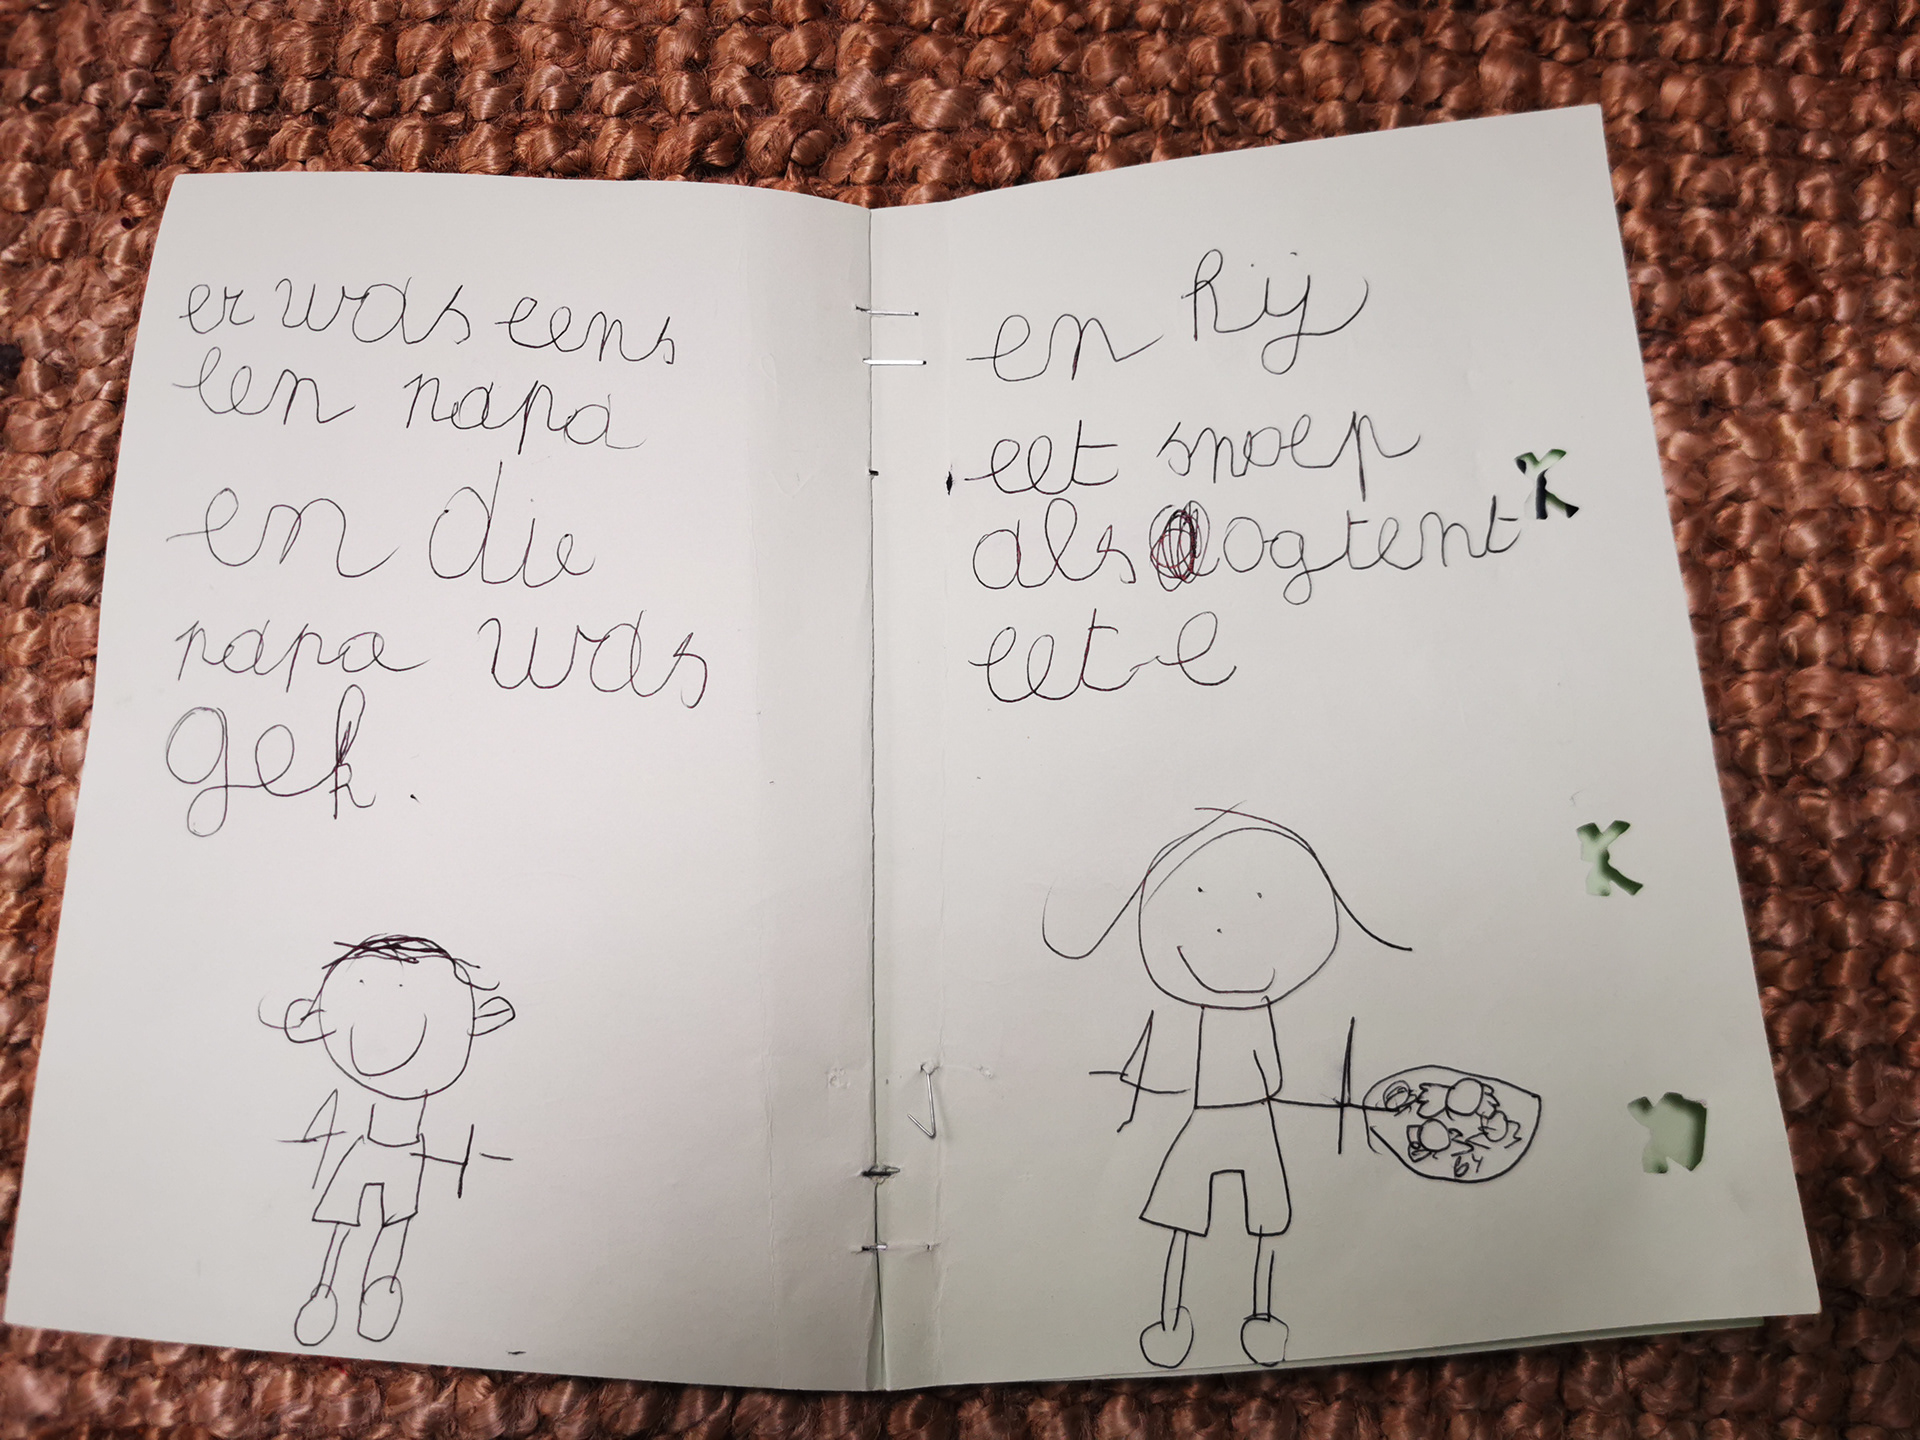 er was eens
een papa
en die
papa was
gek.
en hij
eet snoep
als ogtent
eet-e